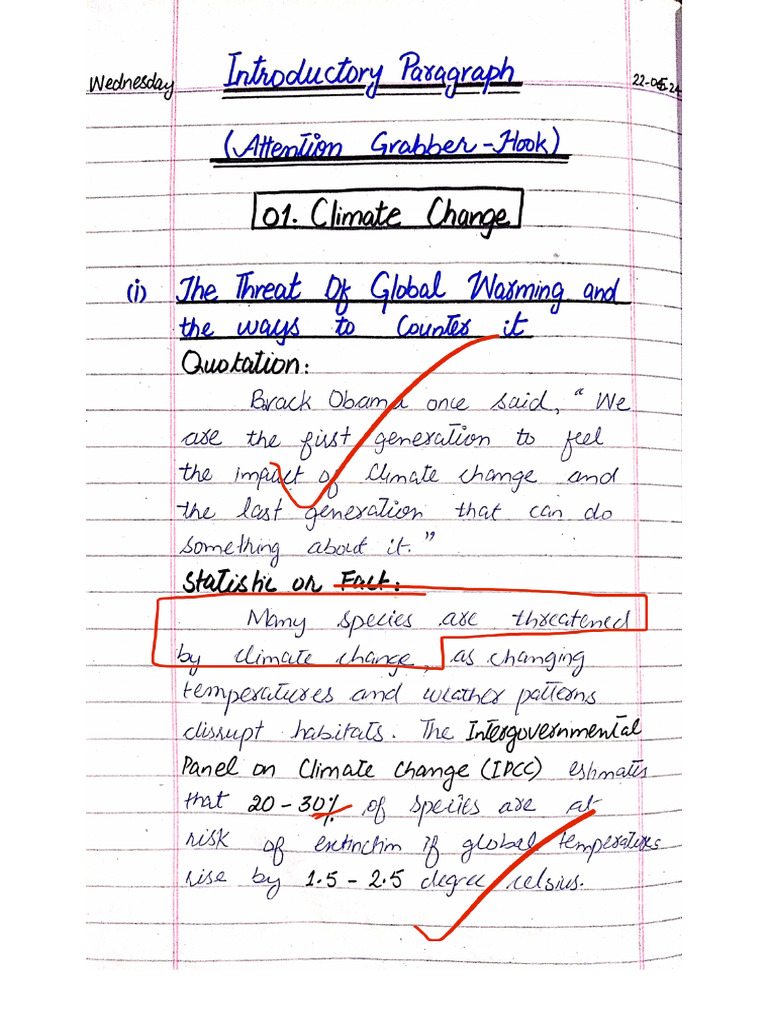 Wednesday
Introductory Paragraph
22-05-24
(Attention Grabber-Hook)
01. Climate Change
(i) The Threat Of Global Warming and
the ways to Counter it
Quotation:
Barack Obama once said, "We
are the first generation to feel
the impact of climate change and
the last generation that can do
something about it."
Statistic or Fact:
Many species are threatened
by climate change, as changing
temperatures and weather patterns
disrupt habitats. The Intergovernmental
Panel on Climate Change (IPCC) estimates
that 20-30% of species are at
risk of extinction if global temperatures
rise by 1.5-2.5 degree celsius.